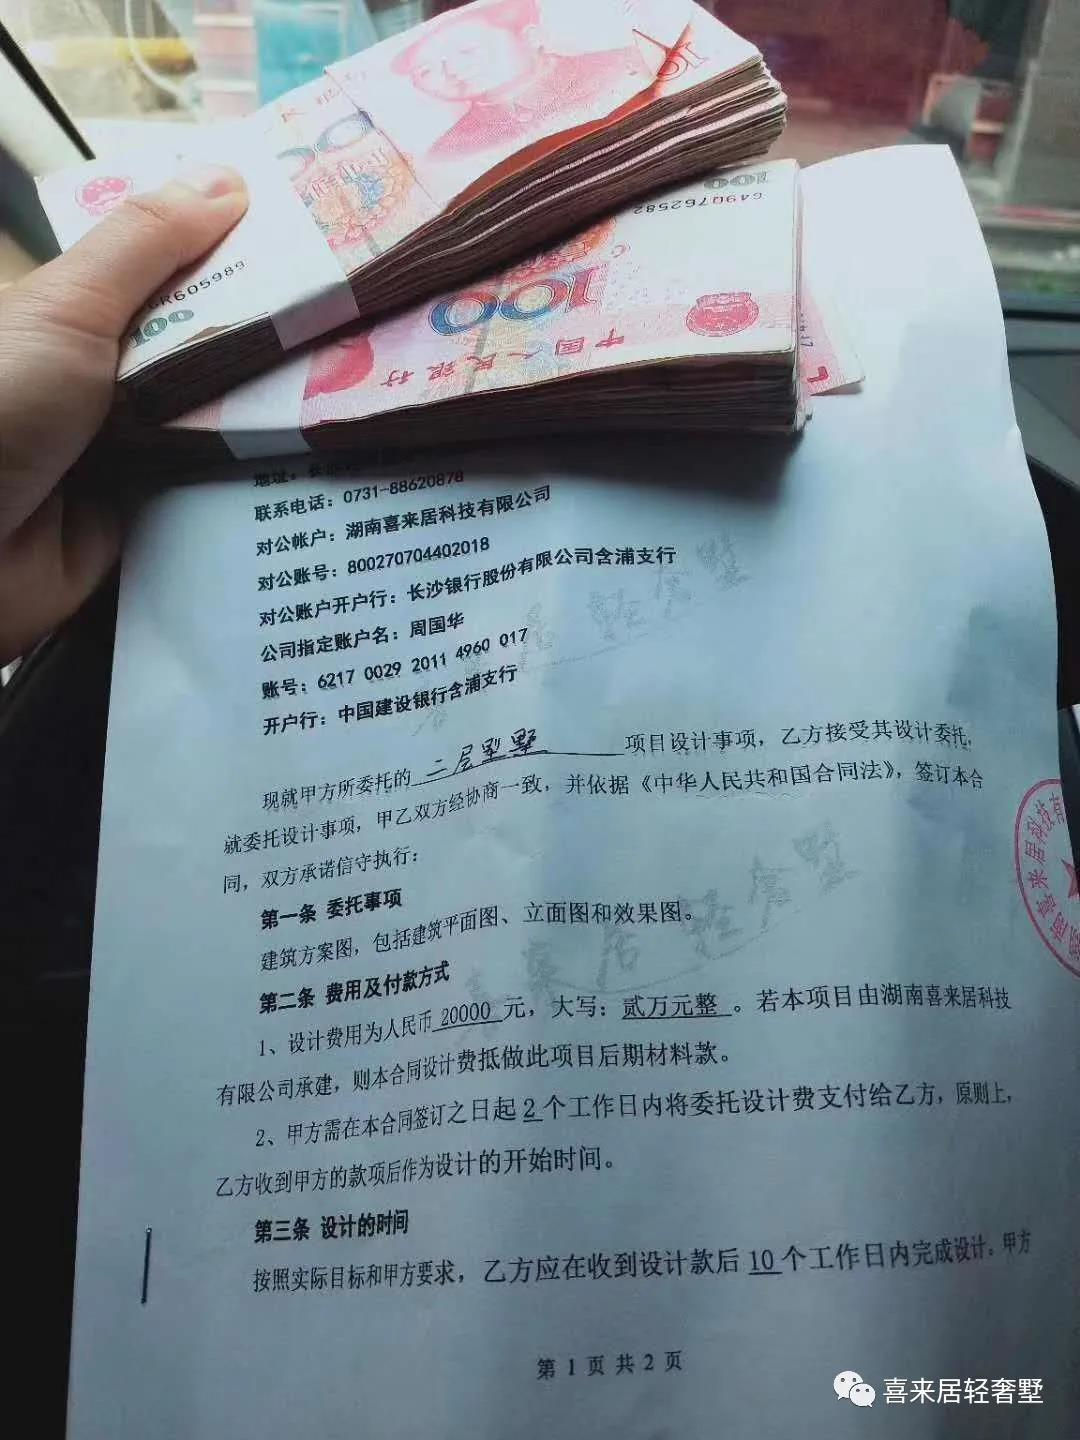 100
GR605989
100
G49Q762582
100
中国人民银行
地址：长
联系电话：0731-88620878
对公帐户：湖南喜来居科技有限公司
对公账号：800270704402018
对公账户开户行：长沙银行股份有限公司含浦支行
公司指定账户名：周国华
账号：6217 0029 2011 4960 017
开户行：中国建设银行含浦支行
现就甲方所委托的 二层别墅 项目设计事项，乙方接受其设计委托，
就委托设计事项，甲乙双方经协商一致，并依据《中华人民共和国合同法》，签订本合
同，双方承诺信守执行：
第一条 委托事项
建筑方案图，包括建筑平面图、立面图和效果图。
第二条 费用及付款方式
1、设计费用为人民币 20000 元，大写：贰万元整 。若本项目由湖南喜来居科技
有限公司承建，则本合同设计费抵做此项目后期材料款。
2、甲方需在本合同签订之日起 2 个工作日内将委托设计费支付给乙方，原则上，
乙方收到甲方的款项后作为设计的开始时间。
第三条 设计的时间
按照实际目标和甲方要求，乙方应在收到设计款后 10 个工作日内完成设计。甲方
第 1 页 共 2 页
湖南喜来居科技有
喜来居轻奢墅